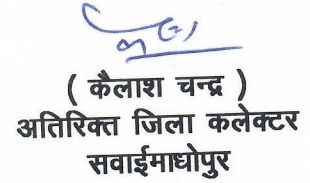 ( कैलाश चन्द्र )
अतिरिक्त जिला कलेक्टर
सवाईमाधोपुर